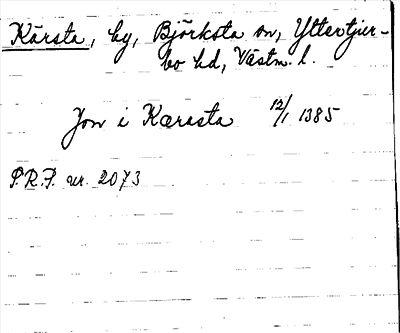 Kärsta, by, Björksta sn, Yttertjur-
bo hd, Västm. l.
Jon i Kærasta 12/1 1385
P.R.P. nr. 2073